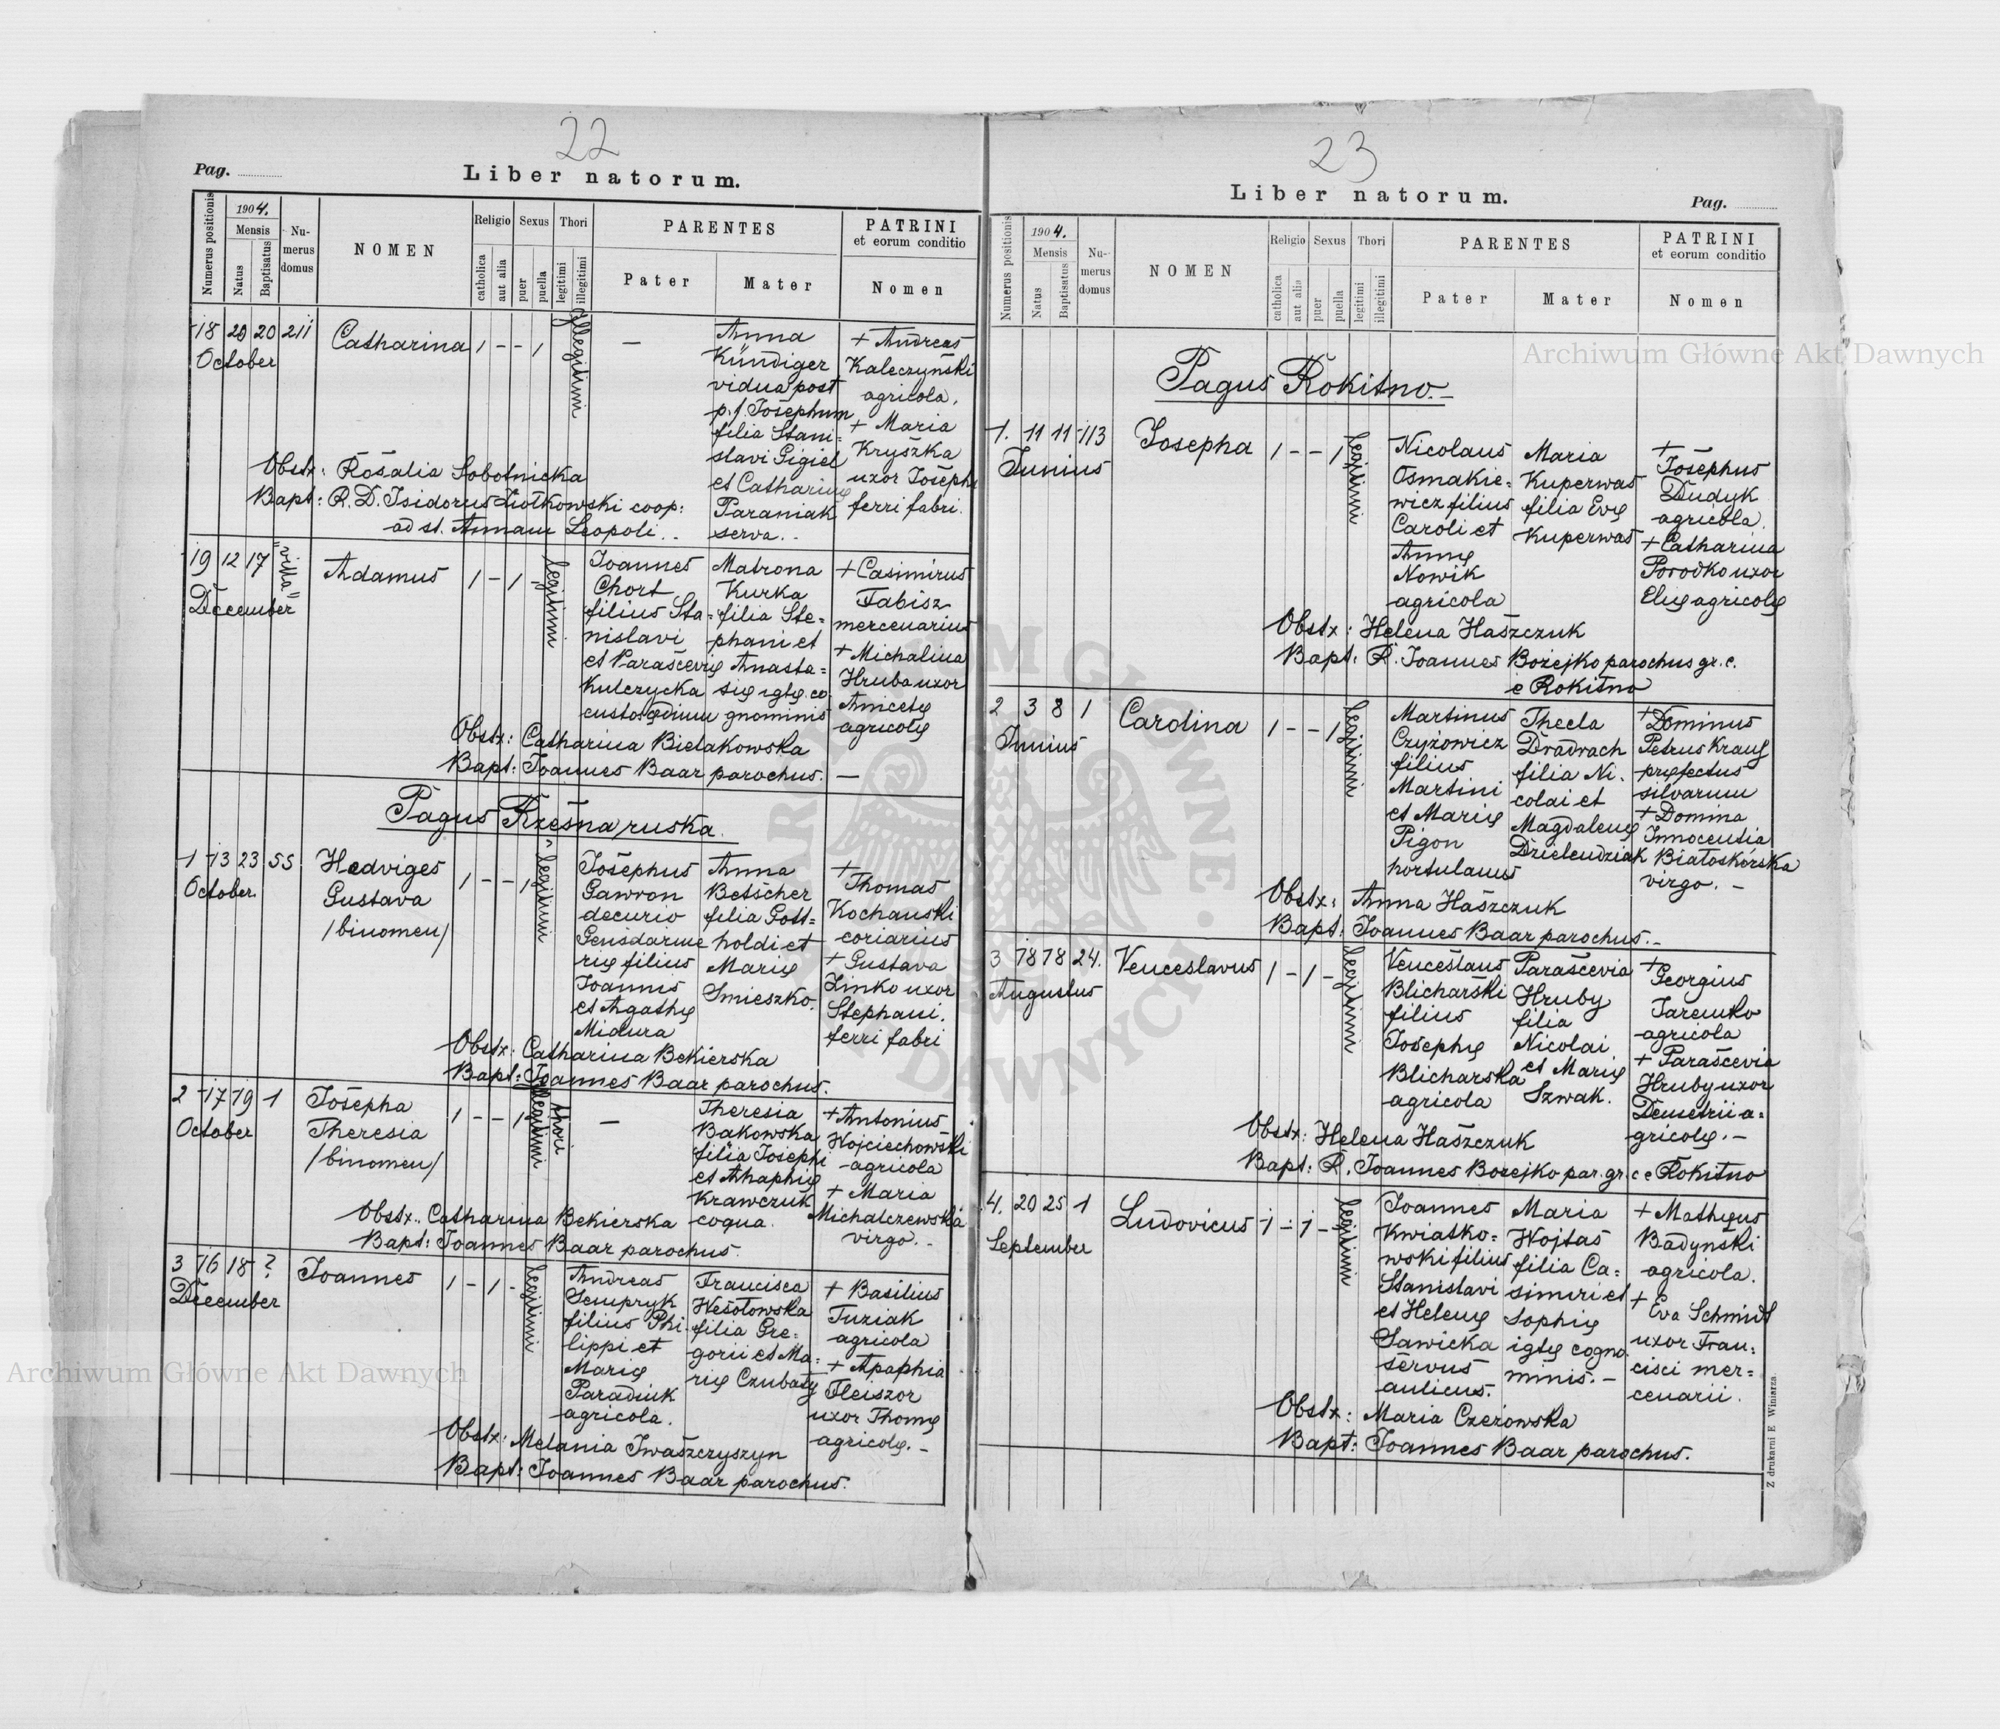 22
Pag.
Liber natorum.
Numerus positionis
1904.
Mensis
Natus
Baptisatus
Numerus domus
NOMEN
Religio
catholica
aut alia
Sexus
puer
puella
Thori
legitimi
illegitimi
PARENTES
Pater
Mater
PATRINI
et eorum conditio
Nomen
18 20 20 211
October
Catharina
1 - - 1
Illegitimi
—
Anna
Kündiger
vidua post
p. f. Josephum
filia Stani=
slavi Gigiel
et Catharinę
Paraniak
serva.
+ Andreas
Kaleczyński
agricola.
+ Maria
Kryszka
uxor Josephi
ferri fabri.
Obstx: Rosalia Sobotnicka
Bapt: R. D. Isidorus Ziołkowski coop:
ad st. Annam Leopoli.
19 12 17 "villa"
December
Adamus
1 - 1 -
legitimi
Joannes
Chort
filius Sta=
nislavi
et Parascevię
Kulczycka
custos ędium
Matrona
Kurka
filia Ste=
phani et
Anasta=
się igtę co
gnominis
+ Casimirus
Fabisz
mercenarius
+ Michalina
Hruba uxor
Anicetę
agricolę
Obstx: Catharina Bielakowska
Bapt: Joannes Baar parochus. —
Pagus Rzęsna ruska.
1 13 23 55
October
Hedviges
Gustava
/binomen/
1 - - 1
legitimi
Josephus
Gawron
decurio
Gensdarme
rię filius
Joannis
et Agathę
Midura
Anna
Betscher
filia Gott=
holdi et
Marię
Smieszko.
+
Thomas
Kochanski
coriarius
+ Gustava
Zinko uxor
Stephani
ferri fabri
Obstx: Catharina Bekierska
Bapt: Joannes Baar parochus.
2 17 19 1
October
Josepha
Theresia
/binomen/
1 - - 1
Illegitimi thori
—
Theresia
Bakowska
filia Josephi
et Ahaphię
Krawczuk
coqua.
+ Antonius
Wojciechowski
agricola
+ Maria
Michalczewska
virgo. -
Obstx.: Catharina Bekierska
Bapt: Joannes Baar parochus.
3 16 18 ?
December
Joannes
1 - 1 -
legitimi
Andreas
Sempryk
filius Phi
lippi et
Marię
Paradiuk
agricola.
Francisca
Wesołowska
filia Gre=
gorii et Ma=
rię Czubaty
+ Basilius
Tuziak
agricola
+ Apaphia
Fleiszor
uxor Thomę
agricolę. -
Obstx: Melania Iwaszczyszyn
Bapt: Joannes Baar parochus.
23
Liber natorum.
Pag.
Numerus positionis
1904.
Mensis
Natus
Baptisatus
Numerus domus
NOMEN
Religio
catholica
aut alia
Sexus
puer
puella
Thori
legitimi
illegitimi
PARENTES
Pater
Mater
PATRINI
et eorum conditio
Nomen
Pagus Rokitno. -
1. 11 11 113
Junius
Josepha
1 - - 1
legitimi
Nicolaus
Osmakie=
wicz filius
Caroli et
Annę
Nowik
agricola
Maria
Kuperwas
filia Evę
Kuperwas
+
Josephus
Dudyk
agricola.
+ Catharina
Porodko uxor
Elię agricolę
Obstx: Helena Haszczuk
Bapt: R. Joannes Bożejko parochus gr. c.
e Rokitno
2 3 8 1
Junius
Carolina
1 - - 1
legitimi
Martinus
Czyżowicz
filius
Martini
et Marię
Pigon
hortulanus
Thecla
Dradrach
filia Ni-
colai et
Magdalenę
Dzielendziak
+ Dominus
Petrus Kraus
pręfectus
silvarum
+ Domina
Innocentia
Białoskorska
virgo. -
Obstx: Anna Haszczuk
Bapt: Joannes Baar parochus. -
3 18 18 24.
Augustus
Venceslavus
1 - 1 -
legitimi
Venceslaus
Blicharski
filius
Josephę
Blicharska
agricola
Parascevia
Hruby
filia
Nicolai
et Marię
Szwak.
+
Georgius
Jaremko
agricola
+ Parascevia
Hruby uxor
Demetrii a=
gricolę. -
Obstx: Helena Haszczuk
Bapt: R. Joannes Bożejko par. gr. c e Rokitno
4. 20 25 1
September
Ludovicus
1 - 1 -
legitimi
Joannes
Kwiatko=
wski filius
Stanislavi
et Helenę
Sawicka
servus
aulicus.
Maria
Wojtas
filia Ca=
simiri et
Sophię
igtę cogno
minis. -
+ Mathęus
Badynski
agricola.
+ Eva Schmidt
uxor Fran=
cisci mer=
cenarii.
Obstx: Maria Czeżowska
Bapt: Joannes Baar parochus.
Z drukarni E Winiarza.
Archiwum Główne Akt Dawnych
Archiwum Główne Akt Dawnych
ARCHIWUM GŁÓWNE AKT DAWNYCH